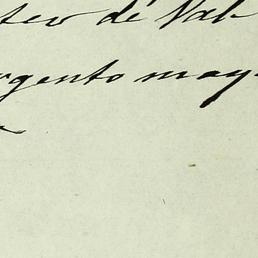 teo de Val
rgento may